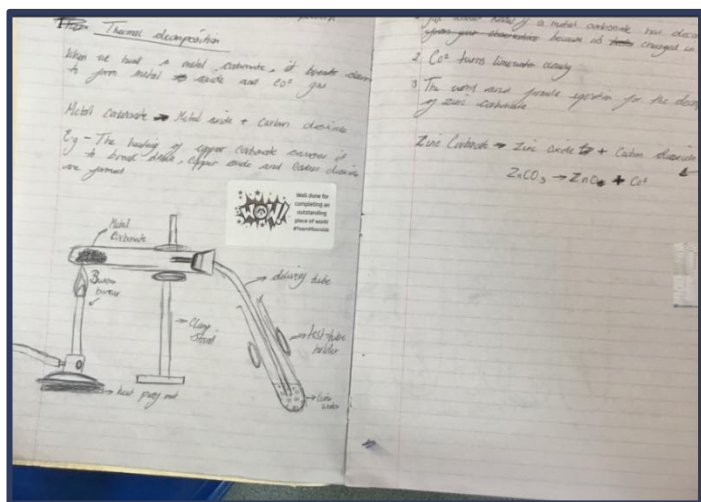 Thermal decomposition
When we heat a metal carbonate, it breaks down
to form metal oxide and CO² gas
Metal Carbonate → Metal oxide + Carbon dioxide
E.g - The heating of copper carbonate causes it
to break down, copper oxide and carbon dioxide
are formed
WOW!
Well done for
completing an
outstanding
piece of work!
Metal
Carbonate
Bunsen
burner
Clamp
Stand
heat proof mat
delivery tube
test-tube
holder
lime
water
of a metal carbonate has
because it changed in
2. CO² turns limewater cloudy
3. The word and formula equation for the
of zinc carbonate
Zinc Carbonate → Zinc oxide + Carbon dioxide
ZnCO₃ → ZnO + CO²